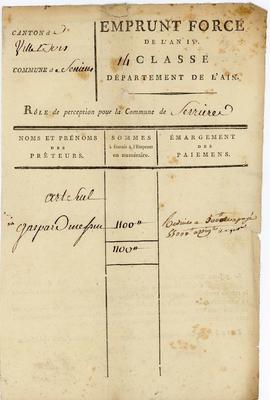 CANTON d
EMPRUNT FORCÉ
DE L'AN IV.
14 CLASSE
COMMUNE d
DÉPARTEMENT DE L'AIN.
RÔLE de perception pour la Commune de Serrières
NOMS ET PRÉNOMS
DES
PRÊTEURS.
SOMMES
à fournir à l'Emprunt
en numéraire.
ÉMARGEMENT
DES
PAIEMENS.
art. Seul
gaspard
1100"
1100"